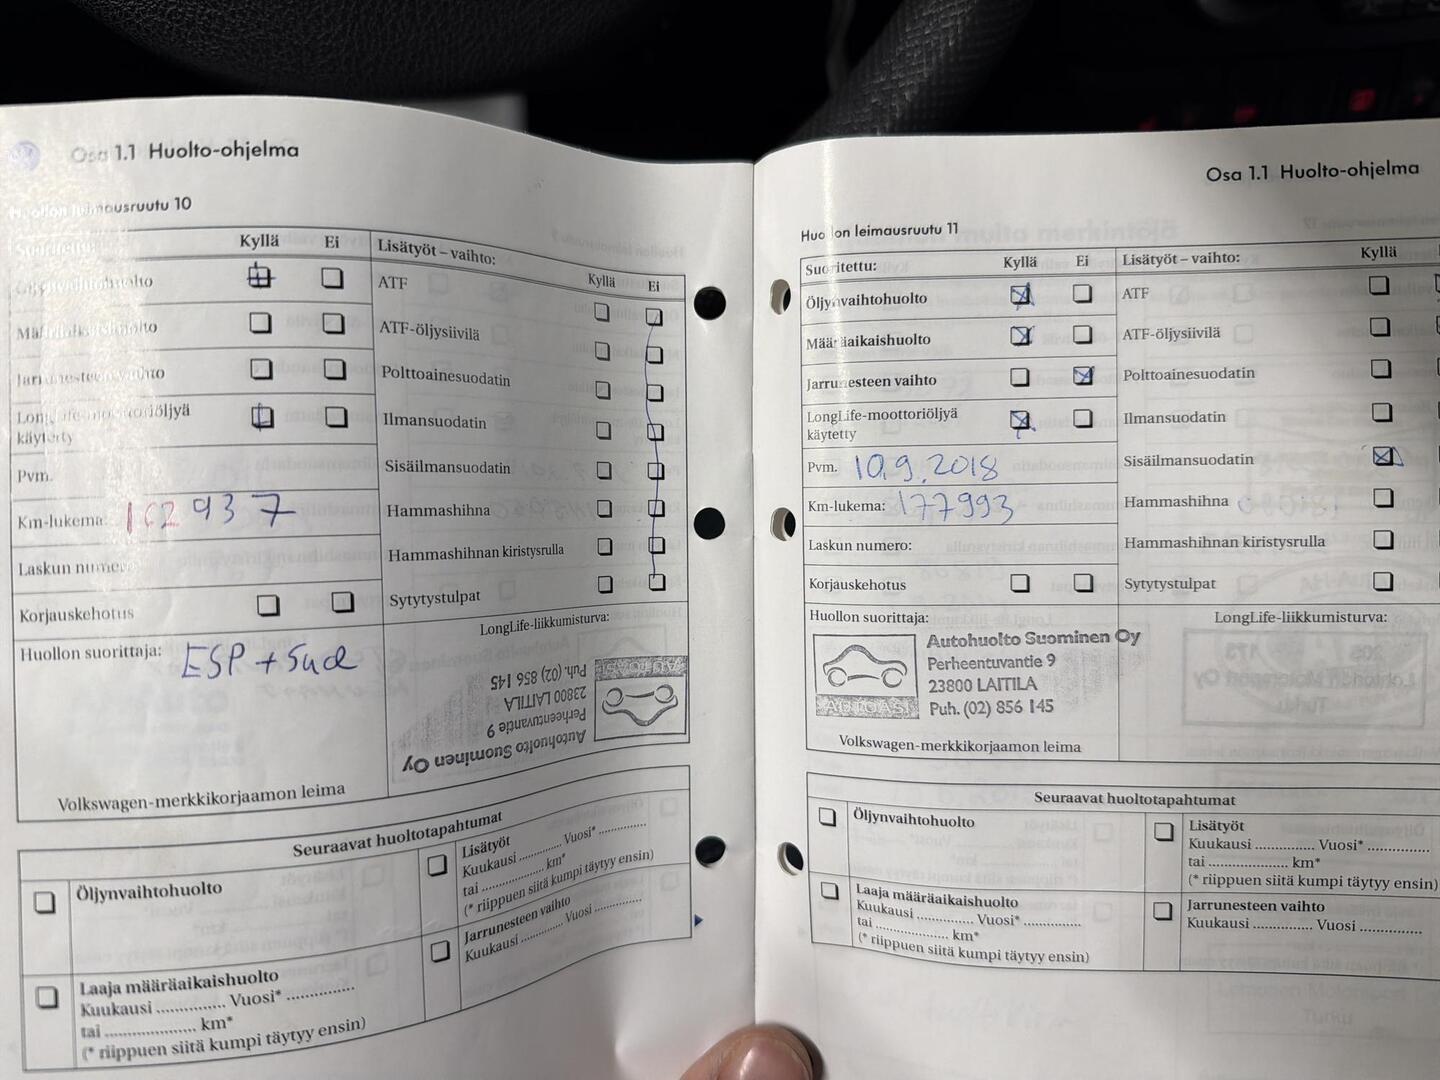 Osa 1.1 Huolto-ohjelma
Huollon leimausruutu 10
Suoritettu: Kyllä Ei
Öljynvaihtohuolto
Määräaikaishuolto
Jarrunesteen vaihto
LongLife-moottoriöljyä
käytetty
Pvm.
Km-lukema: 162 937
Laskun numero:
Korjauskehotus
Huollon suorittaja: ESP + Sud
Volkswagen-merkkikorjaamon leima
Lisätyöt – vaihto:
Kyllä Ei
ATF
ATF-öljysiivilä
Polttoainesuodatin
Ilmansuodatin
Sisäilmansuodatin
Hammashihna
Hammashihnan kiristysrulla
Sytytystulpat
LongLife-liikkumisturva:
Autohuolto Suominen Oy
Perheentuvantie 9
23800 LAITILA
Puh. (02) 856 145
AUTOASI
Seuraavat huoltotapahtumat
Öljynvaihtohuolto
Laaja määräaikaishuolto
Kuukausi .............. Vuosi* ..............
tai ................... km*
(* riippuen siitä kumpi täytyy ensin)
Lisätyöt
Kuukausi .............. Vuosi* ..............
tai ................... km*
(* riippuen siitä kumpi täytyy ensin)
Jarrunesteen vaihto
Kuukausi .............. Vuosi ..............
Osa 1.1 Huolto-ohjelma
Huollon leimausruutu 11
Suoritettu: Kyllä Ei
Öljynvaihtohuolto
Määräaikaishuolto
Jarrunesteen vaihto
LongLife-moottoriöljyä
käytetty
Pvm. 10.9.2018
Km-lukema: 177993
Laskun numero:
Korjauskehotus
Huollon suorittaja:
AUTOASI
Autohuolto Suominen Oy
Perheentuvantie 9
23800 LAITILA
Puh. (02) 856 145
Volkswagen-merkkikorjaamon leima
Lisätyöt – vaihto: Kyllä
ATF
ATF-öljysiivilä
Polttoainesuodatin
Ilmansuodatin
Sisäilmansuodatin
Hammashihna
Hammashihnan kiristysrulla
Sytytystulpat
LongLife-liikkumisturva:
Seuraavat huoltotapahtumat
Öljynvaihtohuolto
Laaja määräaikaishuolto
Kuukausi .............. Vuosi* ..............
tai ................... km*
(* riippuen siitä kumpi täytyy ensin)
Lisätyöt
Kuukausi .............. Vuosi* ..............
tai ................... km*
(* riippuen siitä kumpi täytyy ensin)
Jarrunesteen vaihto
Kuukausi .............. Vuosi ..............